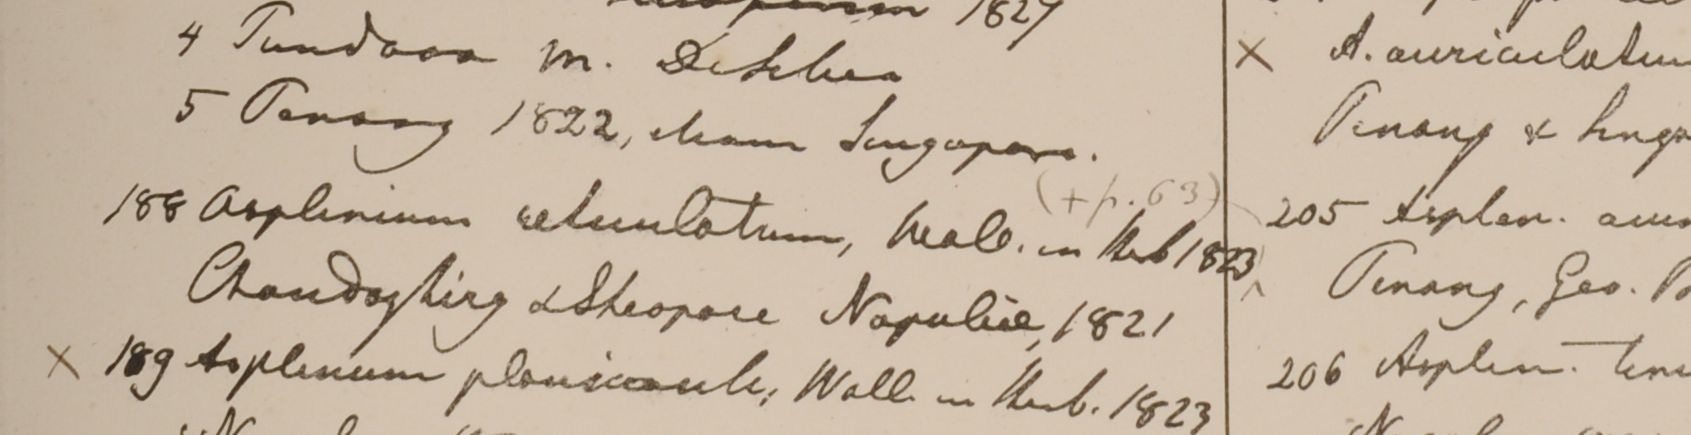 1827
4 Tundava m.
5 Penang 1822, etiam Singapore.
(+ p. 63)
188 Asplenium retusulatum, Wall. in Herb 1823
Chandaghirg & Sheopore Napaliæ, 1821
189 Asplenium planicaule, Wall in Herb. 1823
A. auriculatum
Penang &
205 Asplen.
Penang, Geo.
206 Asplen.